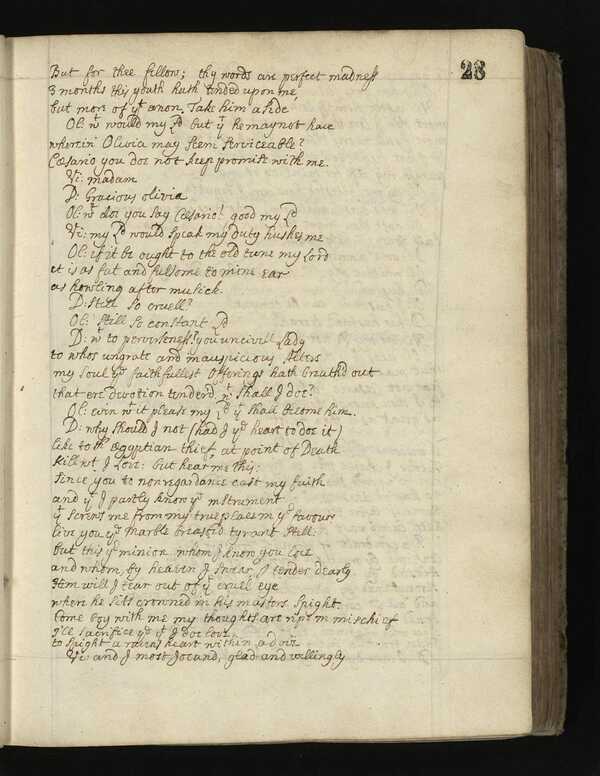 28
But for thee fellow; thy words are perfect madness
3 months this youth hath tended upon me
but more of yt anon, Take him aside
Ol: wt would my Ld but yt he may not have
wherein Olivia may seem serviceable?
Cæsario you doe not keep promise with me.
Vi: madam
D: Gracious olivia
Ol: wt doe you say Cæsario? good my Ld
Vi: my Ld would speak my duty hushes me
Ol: if it be ought to the old tune my Lord
it is as fat and fulsome to mine ear
as howling after musick.
D: Still so cruell?
Ol: Still so constant Ld
D: wt to perverseness? you uncivill Lady
to whos ingrate and inauspicious Alters
my soul ye faithfullest offerings hath breath'd out
that ere devotion tender'd wt shall I doe?
Ol: even wt it please my Ld yt shall become him.
D: why should I not (had I ye heart to doe it)
like to th' Ægyptian thief at point of Death
kill wt I Love: but hear me this:
since you to nonregardance cast my faith
and yt I partly know ye instrument
yt screws me from my true place in yr favour
live you ye Marble breasted tyrant still:
but this yr minion whom, I know you love
and whom, by heaven I swear, I tender dearly
Him will I tear out of yt cruell eye
where he sits crowned in his masters spight.
Come boy with me my thoughts are ripe in mischief
I'll sacrifice ye I doe love,
to spight a ravens heart within a dove
Vi: and I most Jocund, glad and willingly